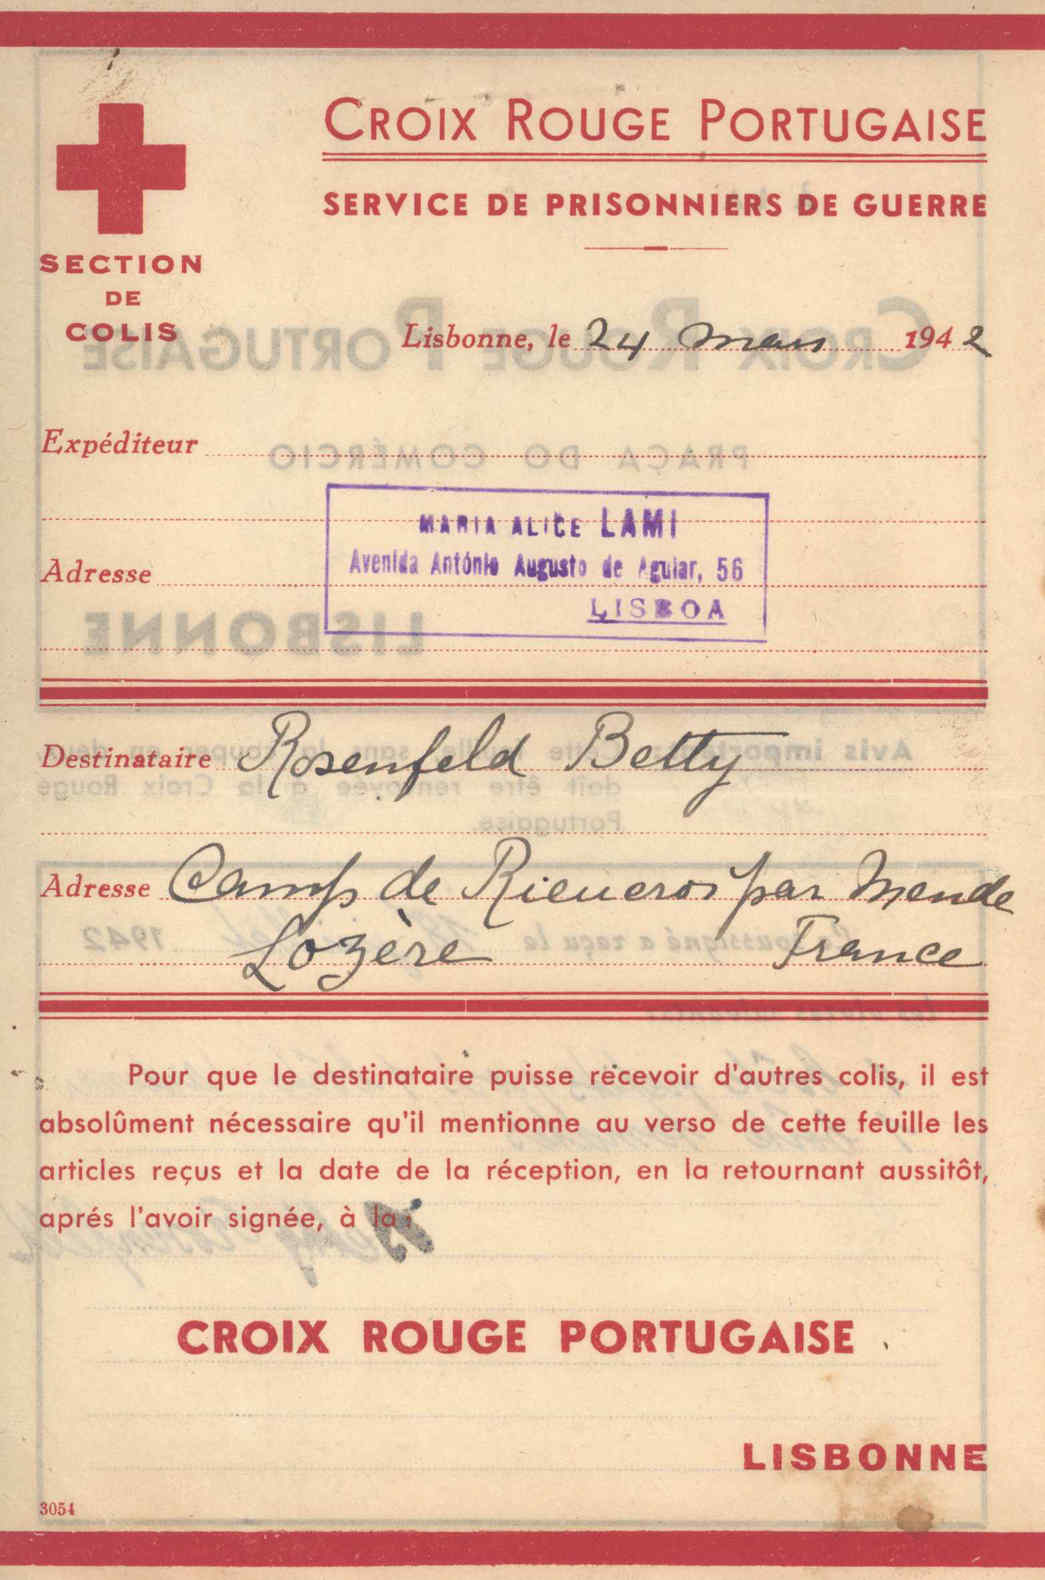 CROIX ROUGE PORTUGAISE
SERVICE DE PRISONNIERS DE GUERRE
SECTION
DE
COLIS
Lisbonne, le 24 Mars 1942
Expéditeur
MARIA ALICE LAMI
Adresse
Avenida António Augusto de Aguiar, 56
LISBOA
Destinataire Rosenfeld Betty
Adresse Camp de Rieucros par Mende
Lozère France
Pour que le destinataire puisse recevoir d'autres colis, il est
absolûment nécessaire qu'il mentionne au verso de cette feuille les
articles reçus et la date de la réception, en la retournant aussitôt,
aprés l'avoir signée, à la:
CROIX ROUGE PORTUGAISE
LISBONNE
3054